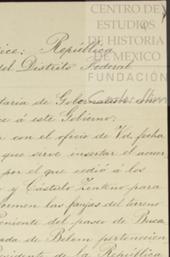 CENTRO DE
ESTUDIOS
DE HISTORIA
DE MEXICO
FUNDACIÓN
Carlos Slim
República
del Distrito Federal
taría de Gobernación
ce á este Gobierno:
con el oficio de Vd. fecha
que sirve insertar el acuer
por el que cedió á los
y Cástulo Zenteno para
formen las fajas del terreno
veniente del paseo de Buca
ada de Belem pertenecien
residente de la República